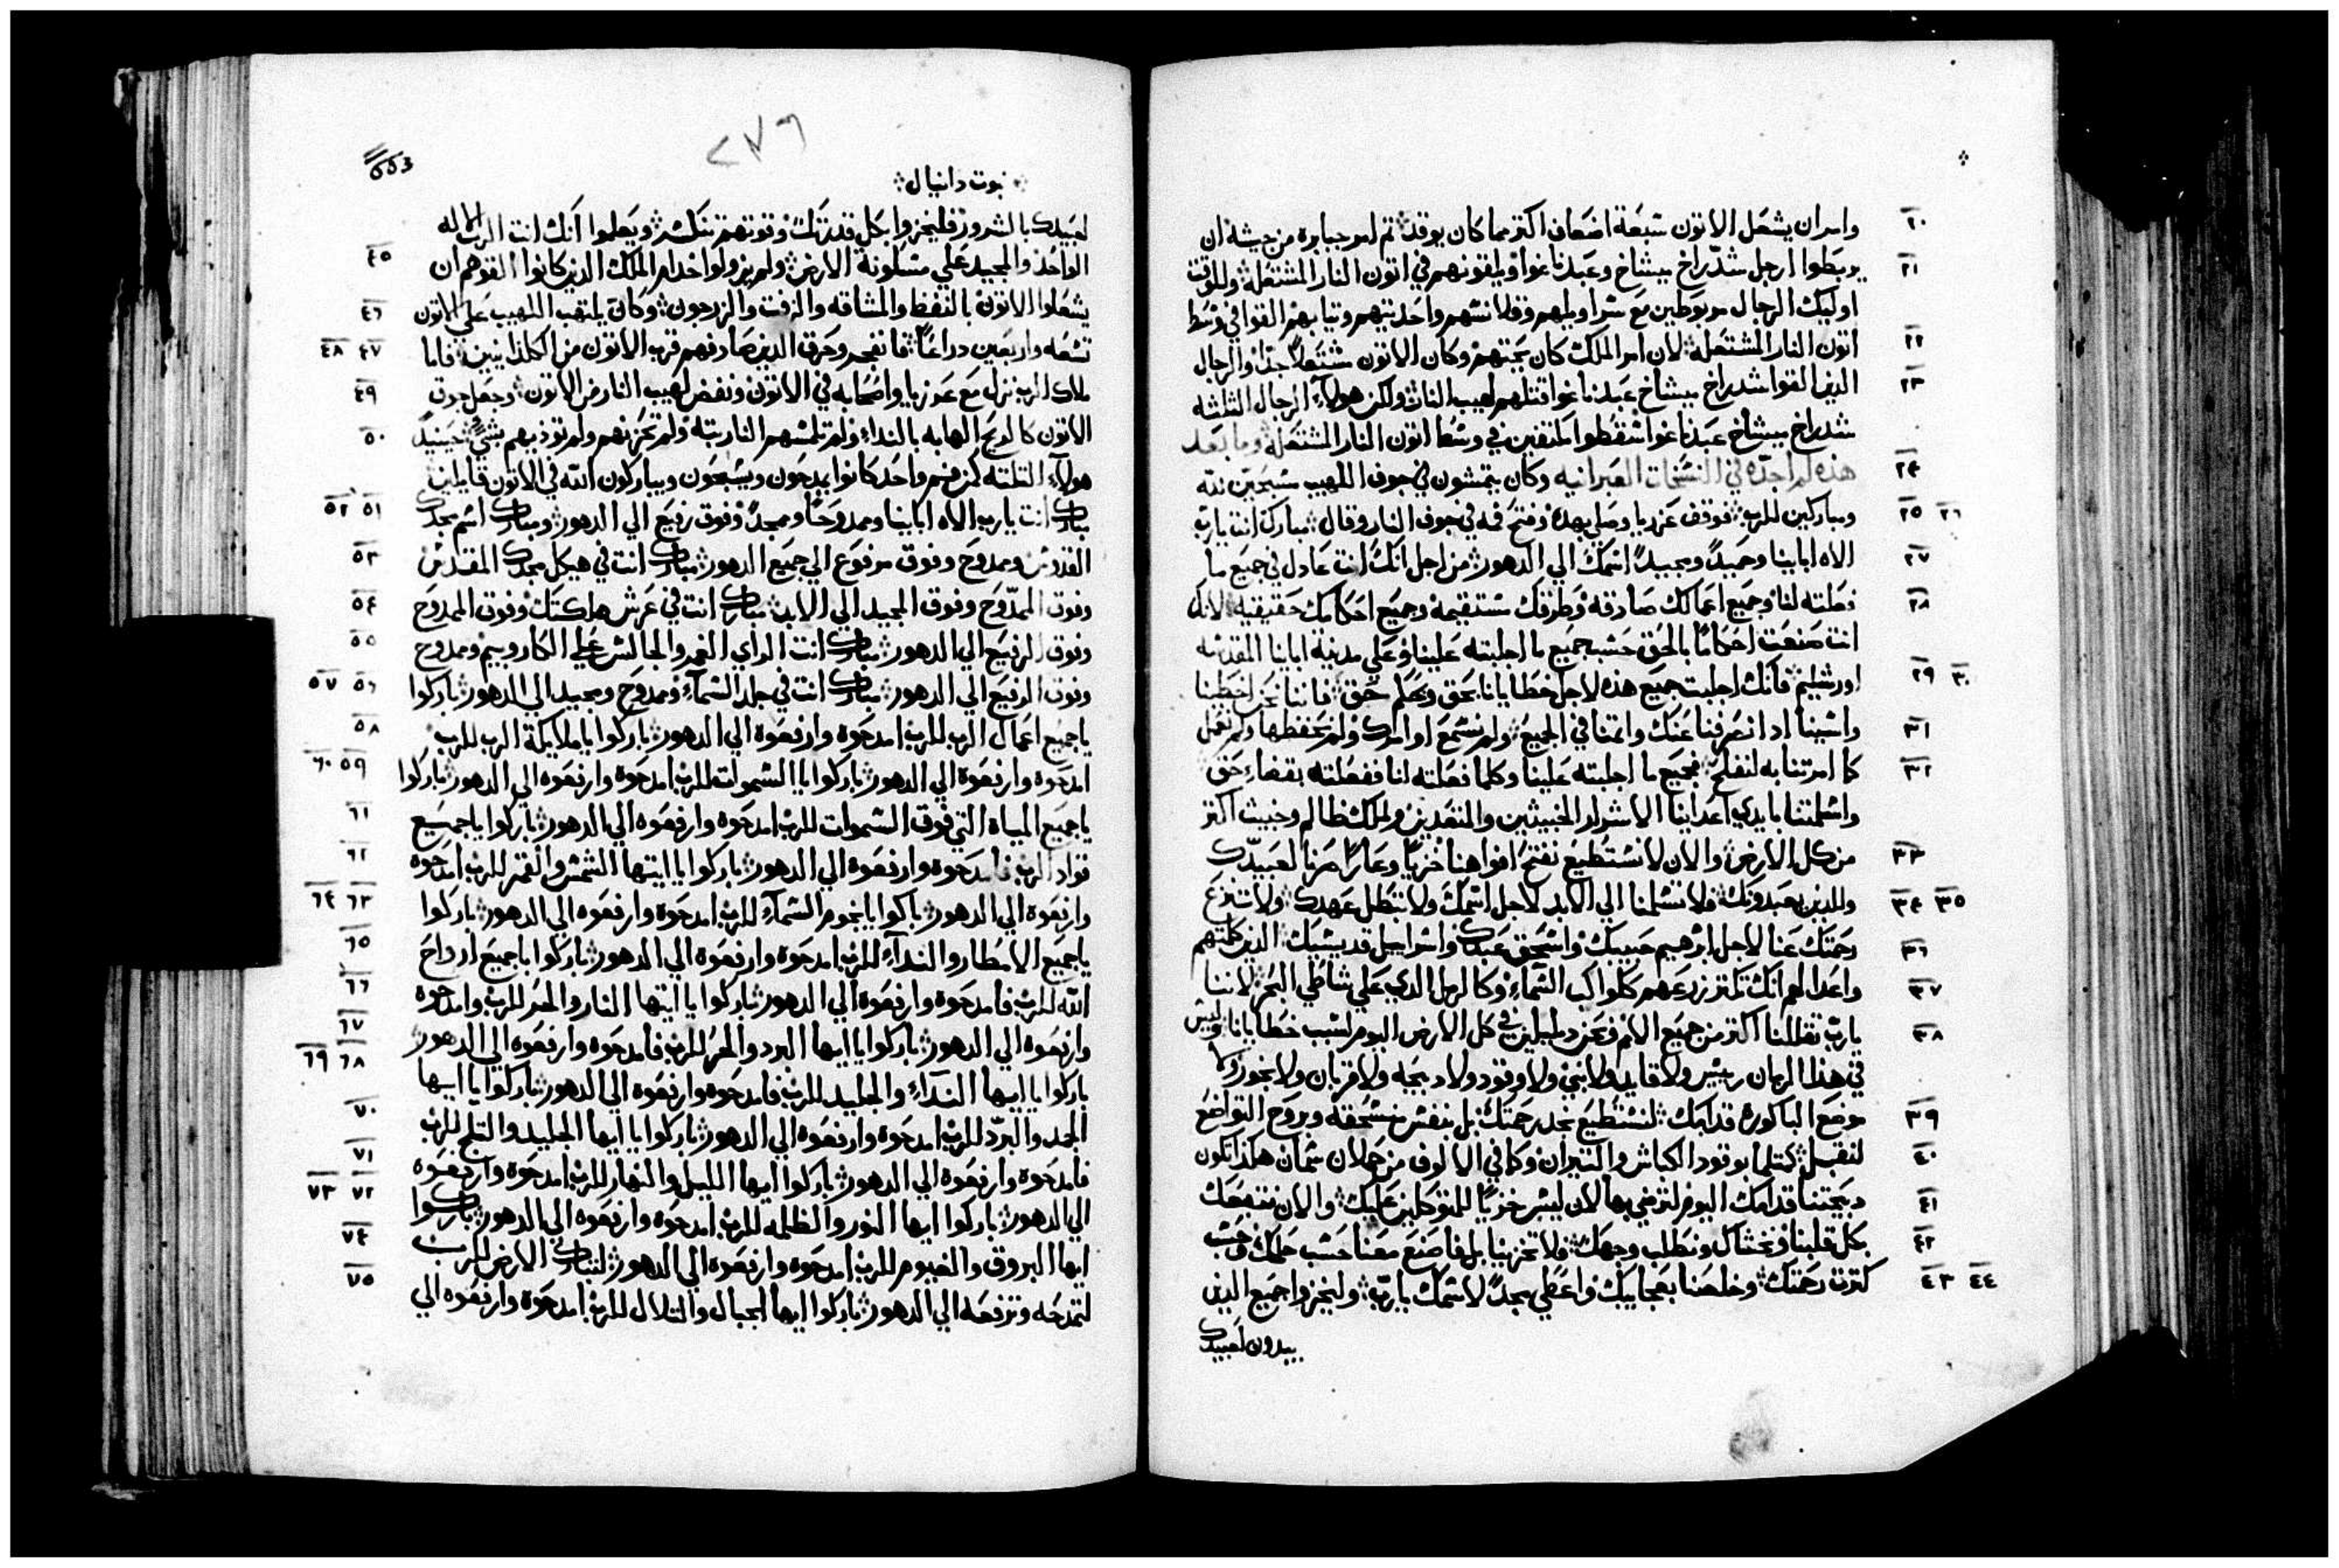 ٢٠ وامر ان يشعل الاتون سبعة اضعاف اكتر مما كان يوقد تم امر جبابرة من جيشه ان
٢١ يربطوا ارجل شدراخ ميشاخ وعبدناغوا ويلقونهم في اتون النار المشتعلة وللوقت
اوليك الرجال مربوطين مع سراويلهم وقلانسهم واحذيتهم وتيابهم القوا في وسط
٢٢ اتون النار المشتعلة لان امر الملك كان يحتهم وكان الاتون مشتعلا جدا والرجال
٢٣ الذين القوا شدراخ ميشاخ عبدناغوا قتلهم لهيب النار ولكن هولاء الرجال الثلثه
شدراخ ميشاخ عبدناغوا سقطوا مكتفين في وسط اتون النار المشتعلة وما بعد
٢٤ هذه لم اجده في النسخات العبرانيه وكان يتمشون في جوف اللهيب مسبحين لله
٢٥ ٢٦ ومباركين للرب فوقف عزريا وصلي بهده وفتح فيه في جوف النار وقال مبارك انت يارب
٢٧ الاه ابايينا وحميد ومجيد اسمك الي الدهور من اجل انك انت عادل في جميع ما
٢٨ فعلته لنا وجميع اعمالك صادقه وطرقك مستقيمة وجميع احكامك حقيقيه لانك
انت صنعت احكاما بالحق حسب جميع ما اجلبته علينا وعلي مدينة ابايينا المقدسه
٢٩ ٣٠ اورشليم فانك اجلبت جميع هذه لاجل خطايانا بحق وبحكم حق فاننا نحن اخطينا
٣١ واسينا اد انصرفنا عنك واتمنا في الجميع ولم نسمع اوامرك ولم نحفظها ولم نعمل
٣٢ كما امرتنا به لنفلح فجميع ما اجلبته علينا وكلما فعلته لنا ففعلته بقضاء حق
واسلمتنا بايدي اعداينا الاشرار الخبيثين والمتعديين ولملك ظالم وخبيث اكتر
٣٣ من كل الارض والان لا نستطيع نفتح افواهنا خزيا وعارا صرنا لعبيدك
٣٤ ٣٥ وللدين يعبدونك فلا تسلمنا الي الابد لاجل اسمك ولا تبطل عهدك ولا تنزع
٣٦ رحمتك عنا لاجل ابرهيم حبيبك واسحق عبدك واسراييل قديسك الذين كلمتهم
٣٧ واعدا لهم انك تكتر زرعهم كلواكب السماء وكالرمل الدي علي شاطي البحر لاننا
٣٨ يارب تقللنا اكتر من جميع الامم ونحن دليلين في كل الارض اليوم لسبب خطايانا وليس
في هذا الزمان رييس ولا قايد ولا نبي ولا وقود ولا دبيحه ولا قربان ولا بخور ولا
٣٩ موضع الباكورة قدامك لنستطيع نجد رحمتك بل بنفس منسحقه وبروح التواضع
٤٠ لنقبل كتلما بوقود الكباش والتيران وكما في الالوف من حملان سمان هكذا تكون
٤١ دبيحتنا قدامك اليوم لترضي بها لان ليس خزيا للمتوكلين عليك والان نتبعك
٤٢ بكل قلبنا ونخشاك ونطلب وجهك فلا تخزينا بل فاصنع معنا حسب حلمك وحسب
٤٣ ٤٤ كترت رحمتك وخلصنا بعجايبك واعطي مجدا لاسمك يارب وليخزوا جميع الدين
يبدون لعبيدك
٢٧٦
553
نبوت دانيال
لعبيدك بالشرور فليخزوا بكل قدرتك وقوتهم تنكسر ويعلموا انك انت الرب الاله
٤٥ الواحد والمجيد علي مسكونة الارض ولم يزولوا خدام الملك الدين كانوا القوهم ان
٤٦ يشعلوا الاتون بالنفط والمشاقه والزفت والزرجون وكان يلتهب اللهيب علي الاتون
٤٧ ٤٨ تسعه واربعين دراعا فانفجر وحرق الدين صادفهم قرب الاتون من الكلدانيين فاما
٤٩ ملاك الرب نزل مع عوزيا واصحابه في الاتون ونفض لهيب النار من الاتون وجعل جوق
٥٠ الاتون كالريح الهابه بالنداء ولم تلمسهم النار بتة ولم تحزنهم ولم توذيهم بشي حينيد
هولاء التلته كمن فم واحد كانوا يمدحون ويسبحون ويباركون الله في الاتون قايلين
٥١ ٥٢ مبارك انت يارب الاه ابايينا وممدوحا وممجدا وفوق رفيع الي الدهور ومبارك اسم مجدك
٥٣ القدوس وممدوح وفوق مرفوع الي جميع الدهور مبارك انت في هيكل مجدك المقدس
٥٤ وفوق الممدوح وفوق المجيد الي الابد مبارك انت في عرش ملكتك وفوق الممدوح
٥٥ وفوق الرفيع الي الدهور مبارك انت الراي الغمر والجالس علي الكاروبيم وممدوح
٥٦ ٥٧ وفوق الرفيع الي الدهور مبارك انت في جلد السماء وممدوح ومجيد الي الدهور باركوا
٥٨ ياجميع اعمال الرب للرب امدحوه وارفعوه الي الدهور باركوا ياملايكة الرب للرب
٥٩ ٦٠ امدحوه وارفعوه الي الدهور باركوا ياالسموات للرب امدحوه وارفعوه الي الدهور باركوا
٦١ ياجميع المياة التي فوق السموات للرب امدحوه وارفعوه الي الدهور باركوا ياجميع
٦٢ قواد الرب فامدحوه وارفعوه الي الدهور باركوا ياايتها الشمس والقمر للرب امدحوه
٦٣ ٦٤ وارفعوه الي الدهور باكوا يانجوم السماء للرب امدحوه وارفعوه الي الدهور باركوا
٦٥ ياجميع الامطار والنداء للرب امدحوه وارفعوه الي الدهور باركوا ياجميع ارواح
٦٦ الله للرب فامدحوه وارفعوه الي الدهور باركوا ياايتها النار والحر للرب وامدحوه
٦٧ وارفعوه الي الدهور باركوا ياايها البرد والحر للرب فامدحوه وارفعوه الي الدهور
٦٨ ٦٩ باركوا ياايها النداء والجليد للرب فامدحوه وارفعوه الي الدهور باركوا ياايها
٧٠ الجمد والبرد للرب امدحوه وارفعوه الي الدهور باركوا ياايها الجليد والتلج للرب
٧١ فامدحوه وارفعوه الي الدهور باركوا ايها الليل والنهار للرب امدحوه وارفعوه
٧٢ ٧٣ الي الدهور باركوا ايها النور والظلمه للرب امدحوه وارفعوه الي الدهور باركوا
٧٤ ايها البروق والغيوم للرب امدحوه وارفعوه الي الدهور لتبارك الارض للرب
٧٥ لتمدحه وترفعه الي الدهور باركوا ايها الجبال والتلال للرب امدحوه وارفعوه الي